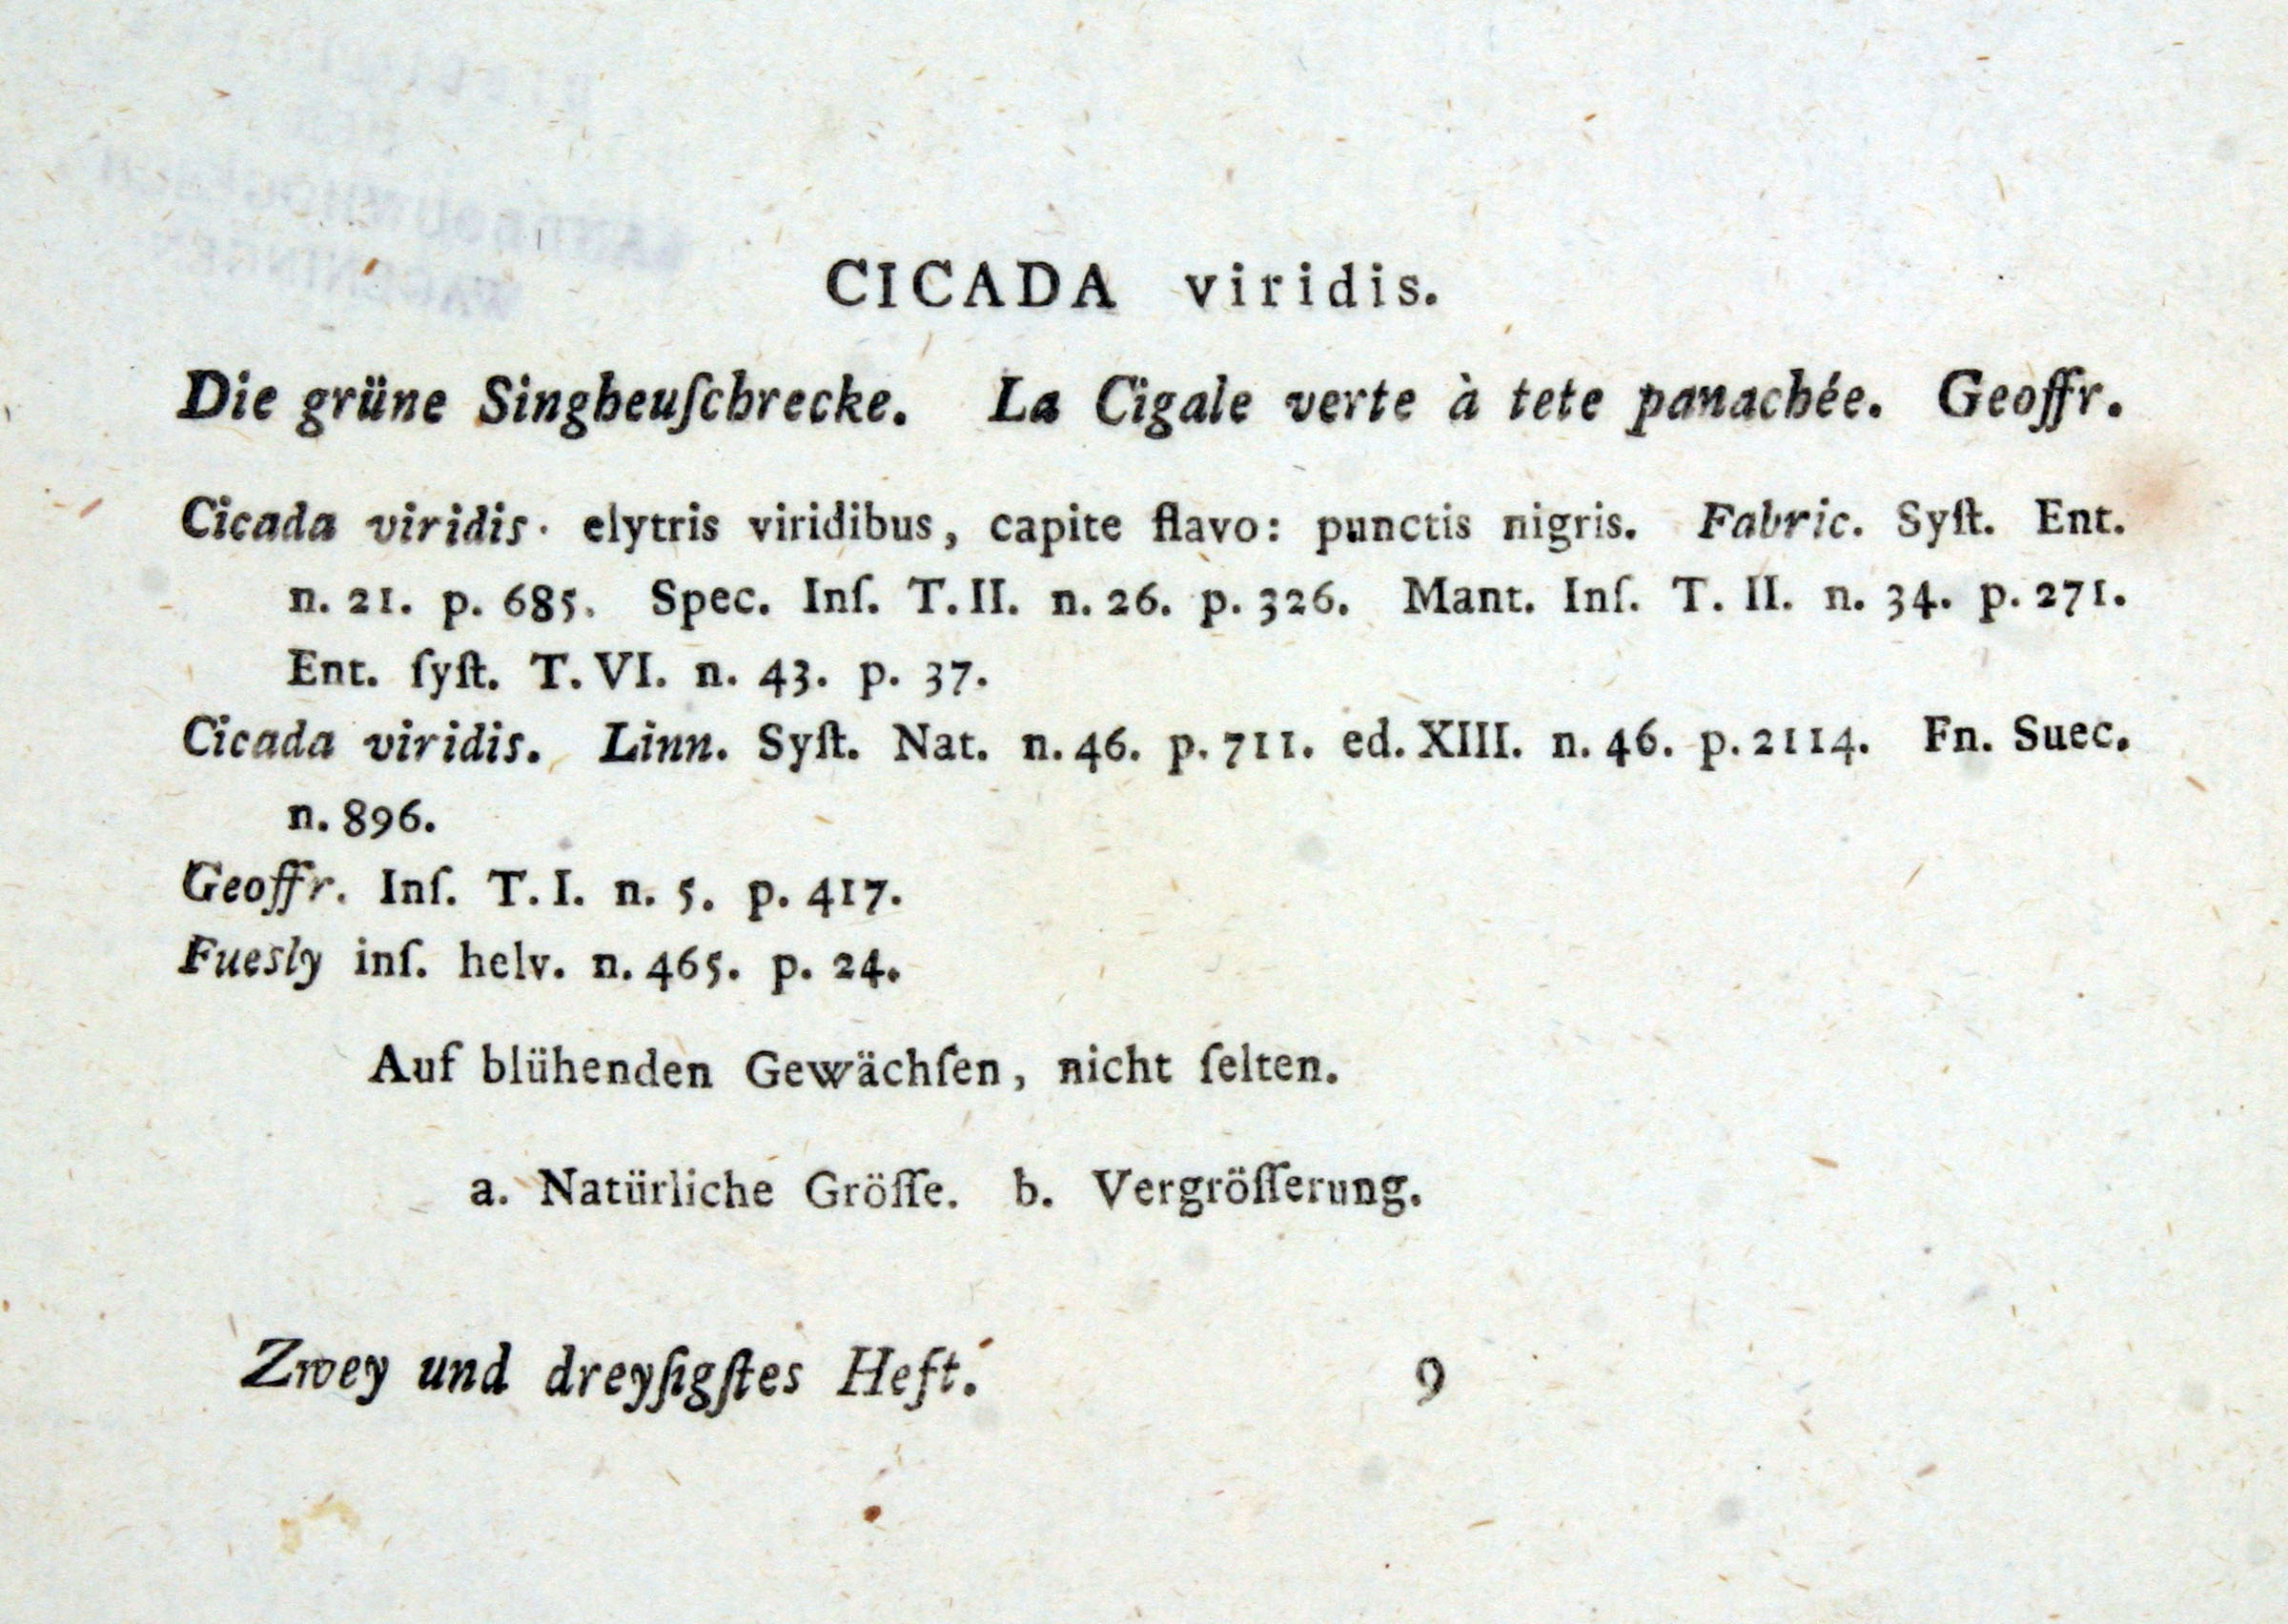 CICADA viridis.
Die grüne Singheuſchrecke. La Cigale verte à tete panachée. Geoffr.
Cicada viridis. elytris viridibus, capite flavo: punctis nigris. Fabric. Syſt. Ent.
n. 21. p. 685. Spec. Inſ. T. II. n. 26. p. 326. Mant. Inſ. T. II. n. 34. p. 271.
Ent. ſyſt. T. VI. n. 43. p. 37.
Cicada viridis. Linn. Syſt. Nat. n. 46. p. 711. ed. XIII. n. 46. p. 2114. Fn. Suec.
n. 896.
Geoffr. Inſ. T. I. n. 5. p. 417.
Fuesly inſ. helv. n. 465. p. 24.
Auf blühenden Gewächſen, nicht ſelten.
a. Natürliche Gröſſe. b. Vergröſſerung.
Zwey und dreyſigſtes Heft. 9